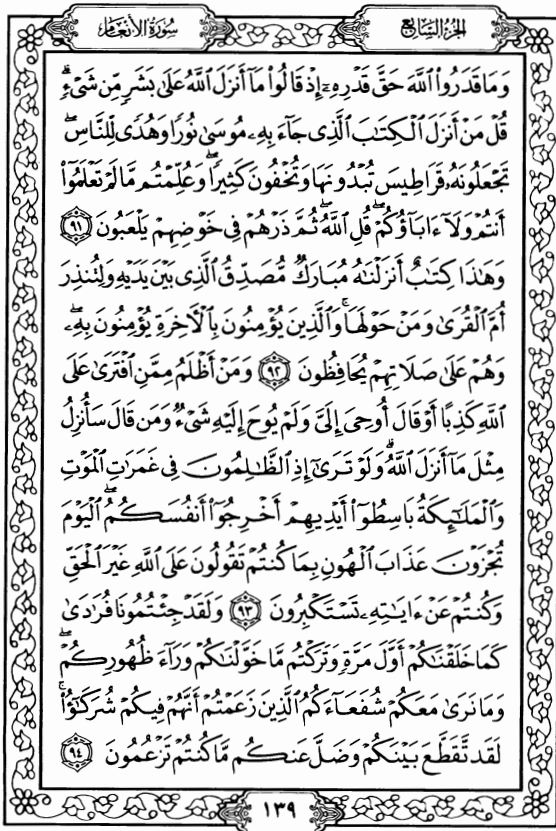 سُورَةُ الأَنعَام
الجُزءُ السَّابِعُ
وَمَا قَدَرُوا۟ ٱللَّهَ حَقَّ قَدْرِهِۦٓ إِذْ قَالُوا۟ مَآ أَنزَلَ ٱللَّهُ عَلَىٰ بَشَرٍ مِّن شَىْءٍ ۗ
قُلْ مَنْ أَنزَلَ ٱلْكِتَٰبَ ٱلَّذِى جَآءَ بِهِۦ مُوسَىٰ نُورًا وَهُدًى لِّلنَّاسِ ۖ
تَجْعَلُونَهُۥ قَرَاطِيسَ تُبْدُونَهَا وَتُخْفُونَ كَثِيرًا ۖ وَعُلِّمْتُم مَّا لَمْ تَعْلَمُوٓا۟
أَنتُمْ وَلَآ ءَابَآؤُكُمْ ۖ قُلِ ٱللَّهُ ۖ ثُمَّ ذَرْهُمْ فِى خَوْضِهِمْ يَلْعَبُونَ ٩١
وَهَٰذَا كِتَٰبٌ أَنزَلْنَٰهُ مُبَارَكٌ مُّصَدِّقُ ٱلَّذِى بَيْنَ يَدَيْهِ وَلِتُنذِرَ
أُمَّ ٱلْقُرَىٰ وَمَنْ حَوْلَهَا ۚ وَٱلَّذِينَ يُؤْمِنُونَ بِٱلْءَاخِرَةِ يُؤْمِنُونَ بِهِۦ ۖ
وَهُمْ عَلَىٰ صَلَاتِهِمْ يُحَافِظُونَ ٩٢ وَمَنْ أَظْلَمُ مِمَّنِ ٱفْتَرَىٰ عَلَى
ٱللَّهِ كَذِبًا أَوْ قَالَ أُوحِىَ إِلَىَّ وَلَمْ يُوحَ إِلَيْهِ شَىْءٌ وَمَن قَالَ سَأُنزِلُ
مِثْلَ مَآ أَنزَلَ ٱللَّهُ ۗ وَلَوْ تَرَىٰٓ إِذِ ٱلظَّٰلِمُونَ فِى غَمَرَٰتِ ٱلْمَوْتِ
وَٱلْمَلَٰٓئِكَةُ بَاسِطُوٓا۟ أَيْدِيهِمْ أَخْرِجُوٓا۟ أَنفُسَكُمُ ۖ ٱلْيَوْمَ
تُجْزَوْنَ عَذَابَ ٱلْهُونِ بِمَا كُنتُمْ تَقُولُونَ عَلَى ٱللَّهِ غَيْرَ ٱلْحَقِّ
وَكُنتُمْ عَنْ ءَايَٰتِهِۦ تَسْتَكْبِرُونَ ٩٣ وَلَقَدْ جِئْتُمُونَا فُرَٰدَىٰ
كَمَا خَلَقْنَٰكُمْ أَوَّلَ مَرَّةٍ وَتَرَكْتُم مَّا خَوَّلْنَٰكُمْ وَرَآءَ ظُهُورِكُمْ ۖ
وَمَا نَرَىٰ مَعَكُمْ شُفَعَآءَكُمُ ٱلَّذِينَ زَعَمْتُمْ أَنَّهُمْ فِيكُمْ شُرَكَٰٓؤُا۟ ۚ
لَقَد تَّقَطَّعَ بَيْنَكُمْ وَضَلَّ عَنكُم مَّا كُنتُمْ تَزْعُمُونَ ٩٤
١٣٩